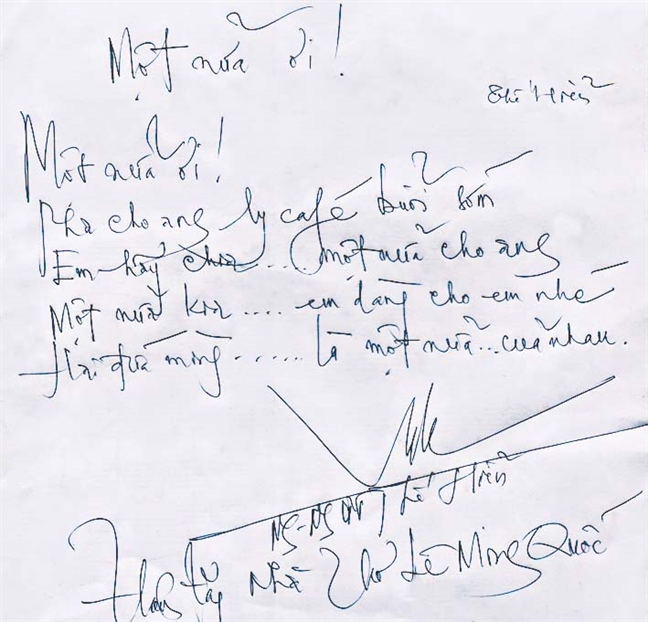 Một nửa ơi!
Thế Hiển
Một nửa ơi!
Pha cho ang ly café buổi sớm
Em hãy chia.... một nửa cho ang
Một nửa kia..... em dàng cho em nhé
Hai đứa mìng...... là một nửa... của nhau.
Thế Hiển
Thâng tặng Nhà Thơ Lê Ming Quốc